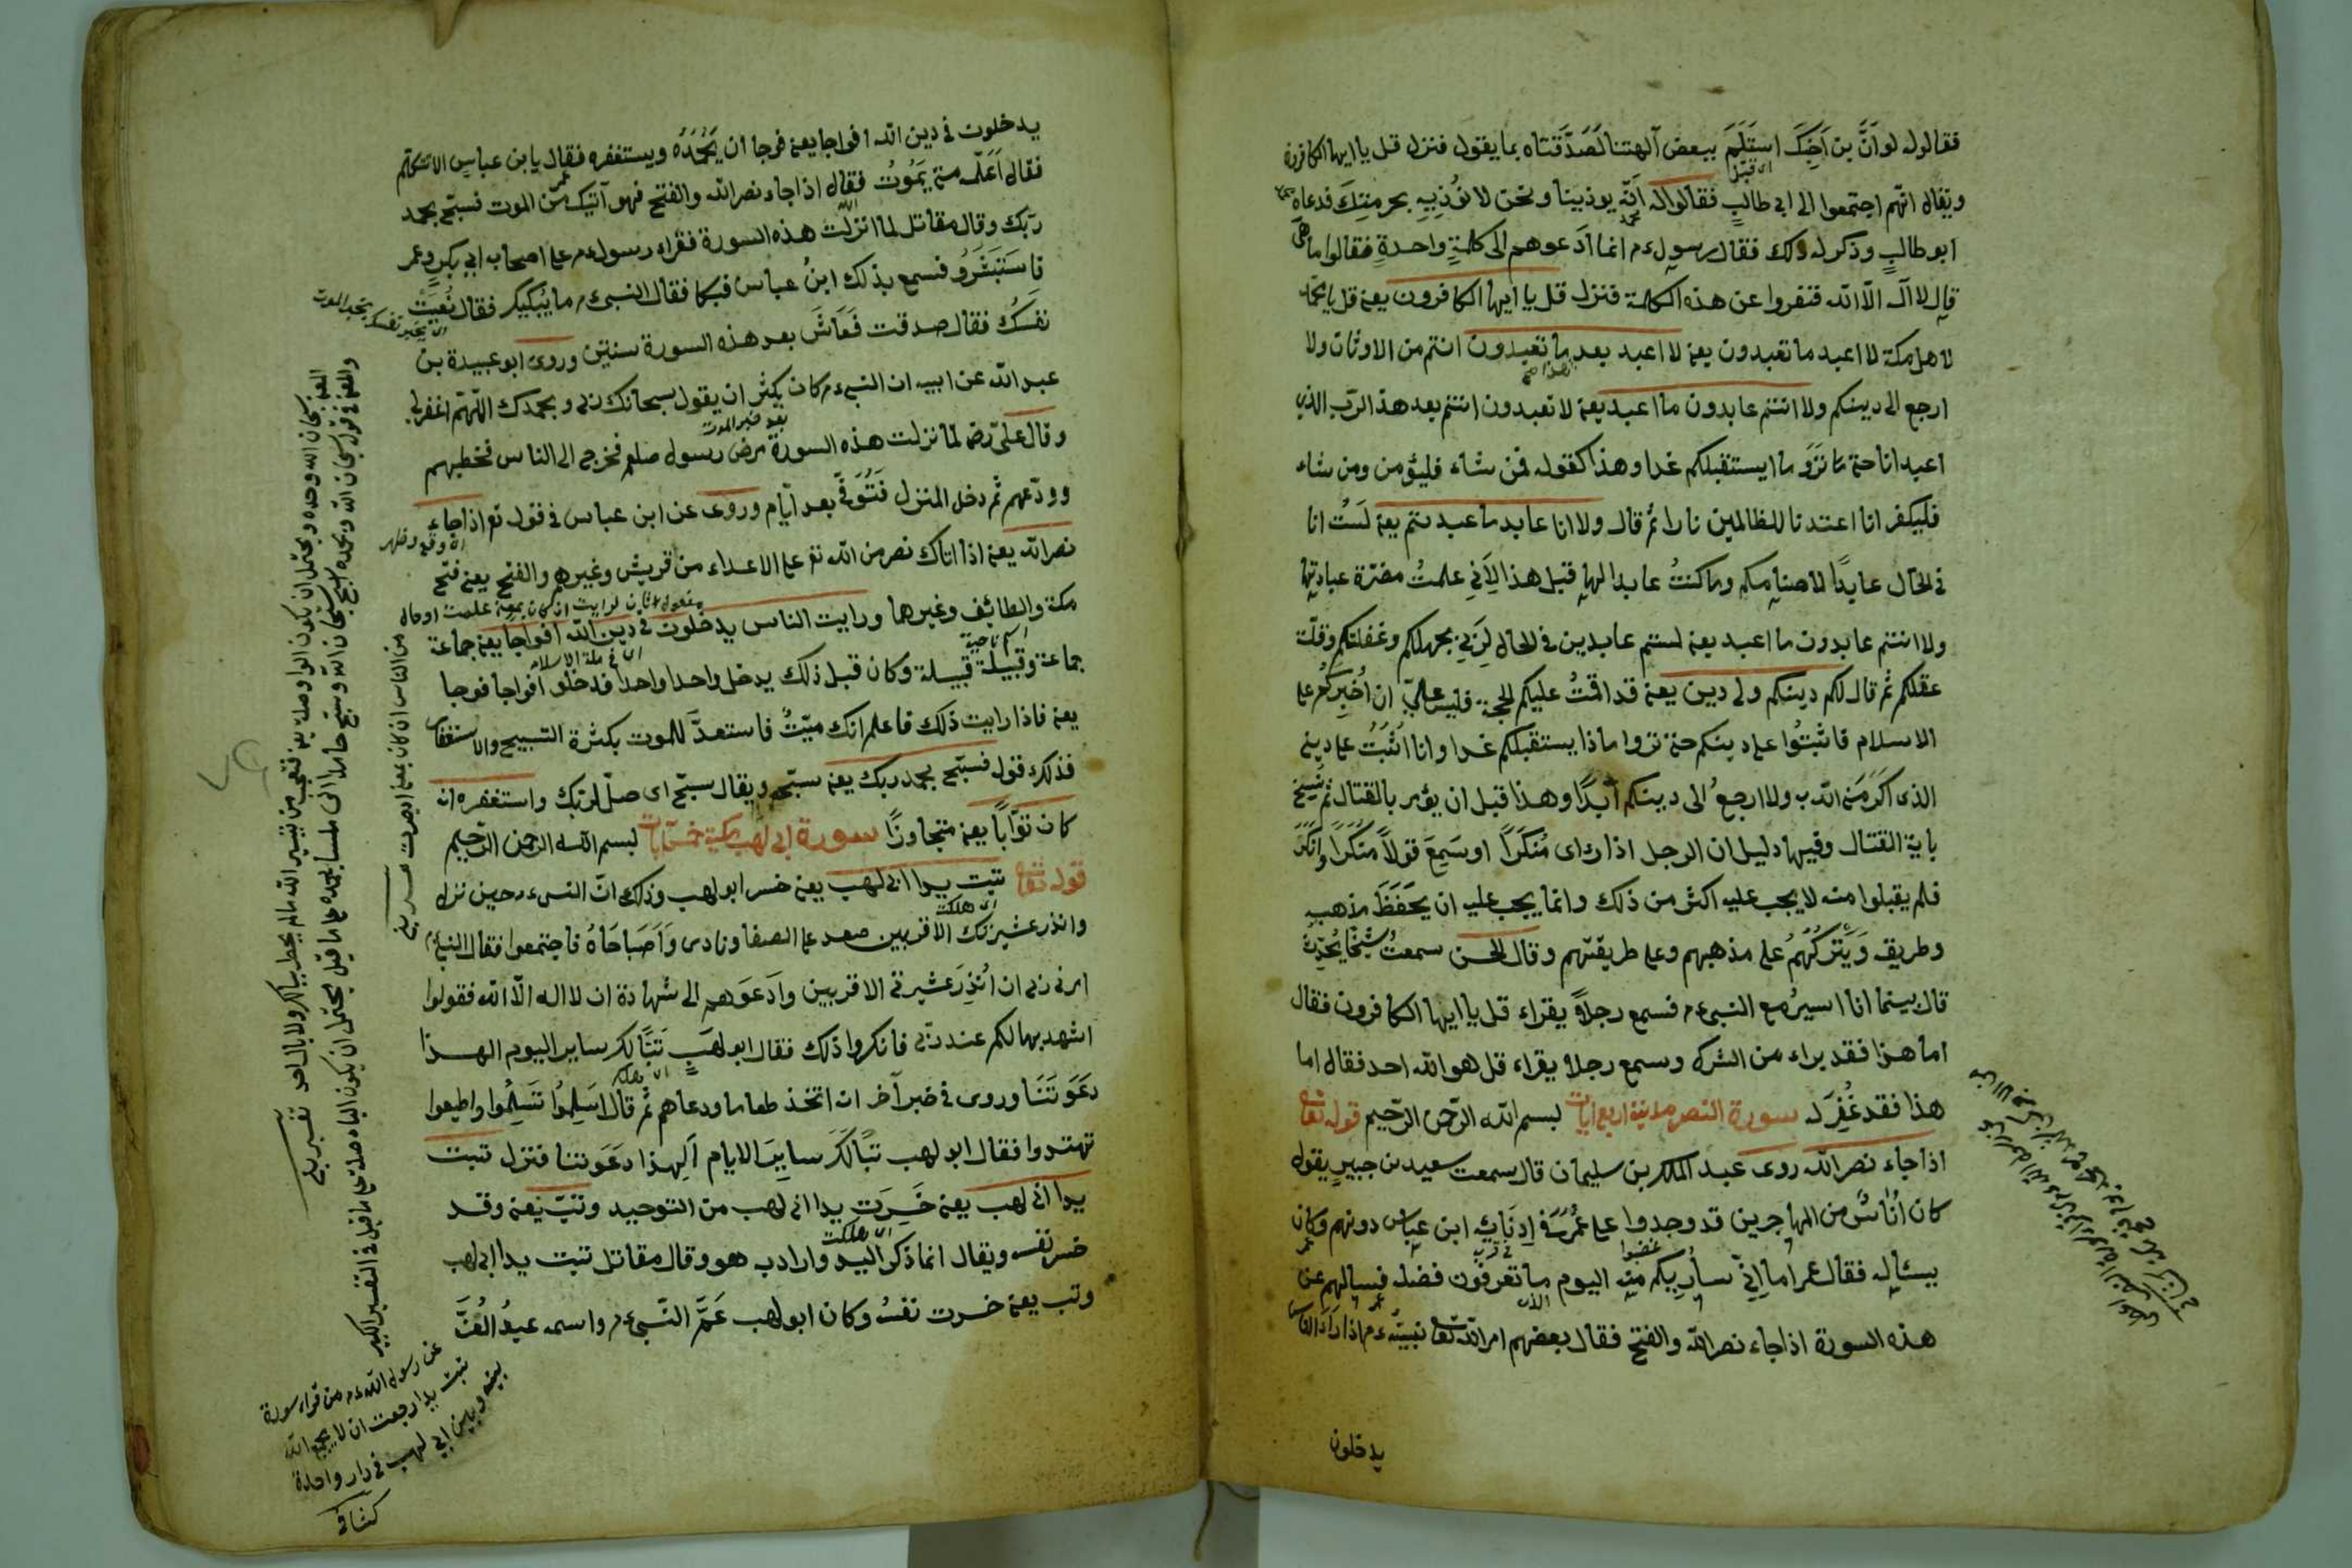 فقالوله لو انّ بن اخيك استلم ببعض آلهتنا لصدّقناه بما يقول فنزل قل يا ايها الكافرون
اى قبّل
ويقال انهم اجتمعوا الى ابى طالب فقالوا له انّه يوذينا ونحن لا نوذيه بحرمتك فدعاه
ابو طالب وذكر له ذلك فقال رسول ء م انما ادعوهم الى كلمة واحدة فقالوا ما هى
قال لا اله الّا الله فنفروا عن هذه الكلمة فنزل قل يا ايها الكافرون يعنى قل يا محمد
لاهل مكة لا اعبد ما تعبدون يعنى لا اعبد بعد ما تعبدون انتم من الاوثان ولا
ارجع الى دينكم ولا انتم عابدون ما اعبد يعنى لا تعبدون انتم بعد هذا الرّب الذى
اعبد انا حتى ما تروا ما يستقبلكم غدا وهذا كقوله فمن شاء فليؤمن ومن شاء
فليكفر انا اعتدنا للظالمين نارا ثم قال ولا انا عابد ما عبدتم يعنى لست انا
فى الحال عابدًا لاصنامكم وما كنتُ عابدا لها قبل هذا لانى علمتُ مضرة عبادتها
ولا انتم عابدون ما اعبد يعنى لستم عابدين فى الحال لربى بجهلكم وغفلتكم وقلّة
عقلكم ثم قال لكم دينكم ولى دين يعنى قد اقمتُ عليكم الحجة فليس علىّ ان اُجبركم على
الاسلام فاثبتُوا على دينكم حتى تروا ماذا يستقبلكم غدا وانا اثبتُ على دينى
الذى اكرمنى الله به ولا ارجعُ الى دينكم ابدًا وهذا قبل ان يؤمر بالقتال ثم نُسِخَ
باية القتال وفيها دليل ان الرجل اذا راى مُنكَرًا او سَمِعَ قولاً منكرًا وانكر
فلم يقبلوا منه لا يجب عليه اكثر من ذلك وانما يجب عليه ان يحفظ مذهبه
وطريقه ويتركهم على مذهبهم وعلى طريقتهم وقال الحسن سمعتُ شيخًا يُحدّث
قال بينما انا اسير مع النبى ء م فسمع رجلاً يقراء قل يا ايها الكافرون فقال
اما هذا فقد براء من الشرك وسمع رجلا يقراء قل هو الله احد فقال اما
هذا فقد غُفِرَ له سورة النصر مدنية اربع ايات بسم الله الرّحمن الرّحيم قوله تعالى
اذا جاء نصر الله روى عبد الملك بن سليمان قال سمعت سعيد بن جبير يقول
كان اُناسٌ من المهاجرين قد وجدوا على عمر فى ادنايه ابن عباس دونهم وكان
يسئاله فقال عمر اما انّى ساُريكم منه اليوم ما تعرفون فضله فسالهم عن
هذه السورة اذا جاء نصر الله والفتح فقال بعضهم امر الله تعالى نبيّه ء م اذا راى الناس
يدخلون
يدخلون فى دين الله افواجا يعنى فوجا ان يَحْمَدَهُ ويستغفره فقال يا بن عباس الا تتكلّم
فقال اعلمه متى يَمُوتُ فقال اذا جاء نصر الله والفتح فهو آتيك من الموت فسبّح بحمد
ربّك وقال مقاتل لما انزلت هذه السورة فقراء رسول ء م على اصحابه ابى بكر وعمر
فاستبشرو فسمع بذلك ابن عباس فبكا فقال النبى ء م ما يُبكيك فقال نُعِيَتْ
نفسُك فقال صدقت فَعَاشَ بعد هذه السورة سنتين وروى ابو عبيدة بن
عبد الله عن ابيه ان النبى ء م كان يكثر ان يقول سبحانك ربى وبحمدك اللّهمّ اغفرلى
وقال علىّ رضه لما نزلت هذه السورة مرض رسول صلعم فخرج الى الناس فخطبهم
وودّعهم ثم دخل المنزل فتوفّى بعد ايّام وروى عن ابن عباس فى قوله تع اذا جاء
اى وقع وظهر
نصر الله يعنى اذا اتاك نصر من الله تع على الاعداء من قريش وغيرهم والفتح يعنى فتح
مكة والطائف وغيرها ورايت الناس يدخلون فى دين الله افواجا يعنى جماعة
اى فى ملة الاسلام
جماعة وقبيلة قبيلة وكان قبل ذلك يدخل واحدا واحدا فدخلو افواجا فوجا
يعنى فاذا رايت ذلك فاعلم انك ميّتٌ فاستعدّ للموت بكثرة التسبيح والاستغفار
فذلك قوله فسبّح بحمد ربك يعنى سبّحه ويقال سبّح اى صلّ لربّك واستغفره انه
كان توّابًا يعنى متجاوزًا سورة ابى لهب مكية خمس ايات بسم الله الرحمن الرّحيم
قوله تعالى تبت يدا ابى لهب يعنى خسر ابو لهب وذلك انّ النبى ء م حين نزل
اى هلكت
وانذر عشيرتك الاقربين صعد على الصفا ونادى واصباحاهُ فاجتمعوا فقال النبى ء م
امرنى ربى ان اُنذِرَ عشيرتى الاقربين وادعوهم الى شهادة ان لا اله الّا الله فقولوا
اشهد بها لكم عند ربّى فانكروا ذلك فقال ابو لهب تبًّا لك ساير اليوم الهذا
دَعَوتَنَا وروى فى خبر آخر انه اتخذ طعاما ودعاهم ثم قال اَسلِمُوا تَسلِمُوا واطيعوا
تهتدوا فقال ابو لهب تبًّا لك ساير الايام الهذا دعوتنا فنزل تبت
يدا ابى لهب يعنى خَسِرَت يدا ابى لهب من التوحيد وتبّ يعنى وقد
اى هلكت
خسر نفسه ويقال انما ذكر اليد واراد به هو وقال مقاتل تبت يدا ابى لهب
وتب يعنى خسرت نفسُه وكان ابو لهب عَمَّ النّبى ء م واسمه عبدُ العُزَّى
عن رسول الله ء م من قراء سورة
تبت يدا رجعت ان لا يجمع الله
بينه وبين ابى لهب فى دار واحدة
كشاف